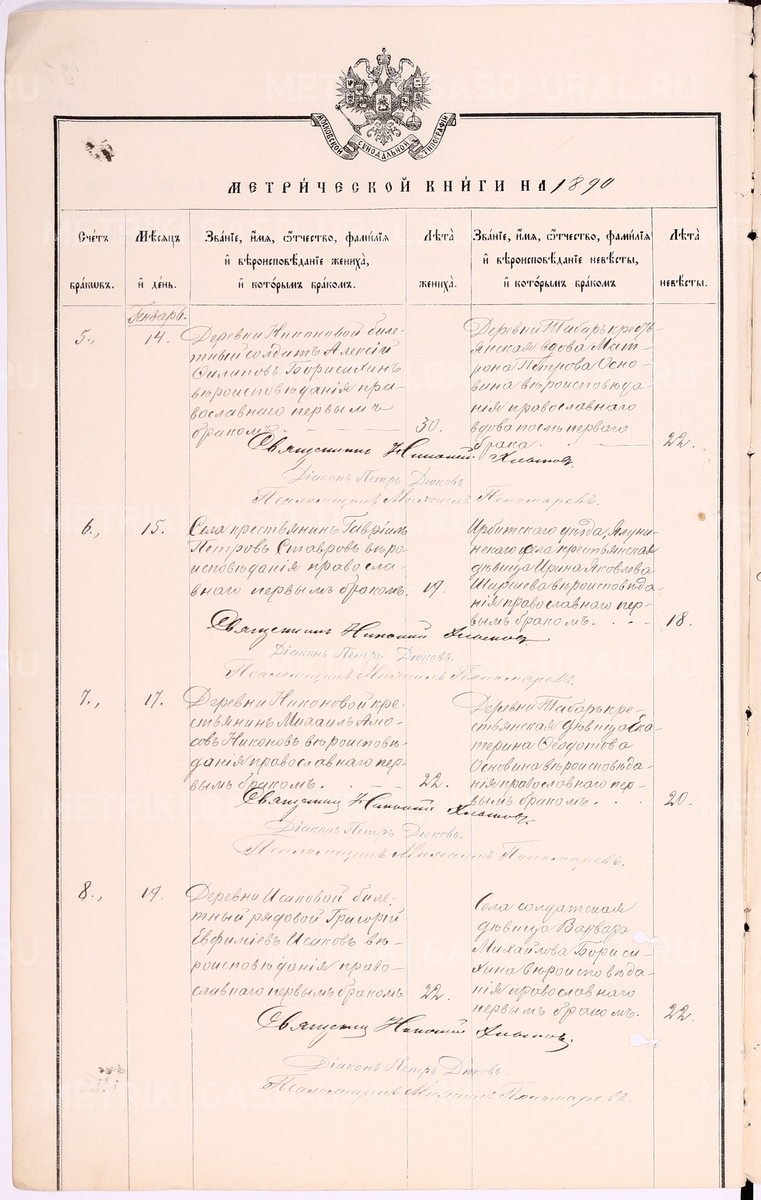 МОСКОВСКОЙ СѴНОДАЛЬНОЙ ТИПОГРАФІИ
МЕТРИ́ЧЕСКОЙ КНИ́ГИ НА 1890
Сче́тъ бра́кѡвъ.
Мѣ́сяцъ и҆ де́нь.
Зва́нїе, и҆́мя, ѻ҆́тчество, фами́лїя
и҆ вѣроисповѣ́данїе жениха̀,
и҆ кото́рымъ бра́комъ.
Лѣ́та жениха̀.
Зва́нїе, и҆́мя, ѻ҆́тчество, фами́лїя
и҆ вѣроисповѣ́данїе невѣ́сты,
и҆ кото́рымъ бра́комъ
Лѣ́та невѣ́сты.
Генварь.
5., 14.
Деревни Никоновой биле-
тный солдатъ Алексій
Филиповъ Борисихинъ
вѣроисповѣданія пра-
вославнаго первымъ
бракомъ. 30.
Деревни Табаръ кресть-
янская вдова Мат-
рона Петрова Осно-
вина вѣроисповѣда-
нія православнаго
вдова послѣ перваго
брака. 22.
Священникъ Николай
Діаконъ Петръ Дюковъ.
Псаломщикъ Михаилъ Пономаревъ.
6., 15.
Села крестьянинъ Гавріилъ
Петровъ Ставровъ вѣро
исповѣданія правосла-
внаго первымъ бракомъ. 19.
Ирбитскаго уѣзда
села крестьянская
дѣвица Ирина Яковлева
вѣроисповѣда-
нія православнаго пер-
вымъ бракомъ. 18.
Священникъ Николай
Діаконъ Петръ Дюковъ.
Псаломщикъ Михаилъ Пономаревъ.
7., 17.
Деревни Никоновой кре-
стьянинъ Михаилъ Амо-
совъ Никоновъ вѣроисповѣ-
данія православнаго пер-
вымъ бракомъ. 22.
Деревни Табаръ кре-
стьянская дѣвица Ека-
терина Ѳеодотова
Основина вѣроисповѣда-
нія православнаго пер-
вымъ бракомъ. 20.
Священникъ Николай
Діаконъ Петръ Дюковъ.
Псаломщикъ Михаилъ Пономаревъ.
8., 19.
Деревни Исаковой биле-
тный рядовой Григорій
Евфиміевъ Исаковъ вѣ-
роисповѣданія право-
славнаго первымъ бракомъ 22.
Села солдатская
дѣвица Варвара
Михайлова Бориси-
хина вѣроисповѣда-
нія православнаго
первымъ бракомъ. 22.
Священникъ Николай
Діаконъ Петръ Дюковъ.
Псаломщикъ Михаилъ Пономаревъ.
METRIKI.GASO-URAL.RU